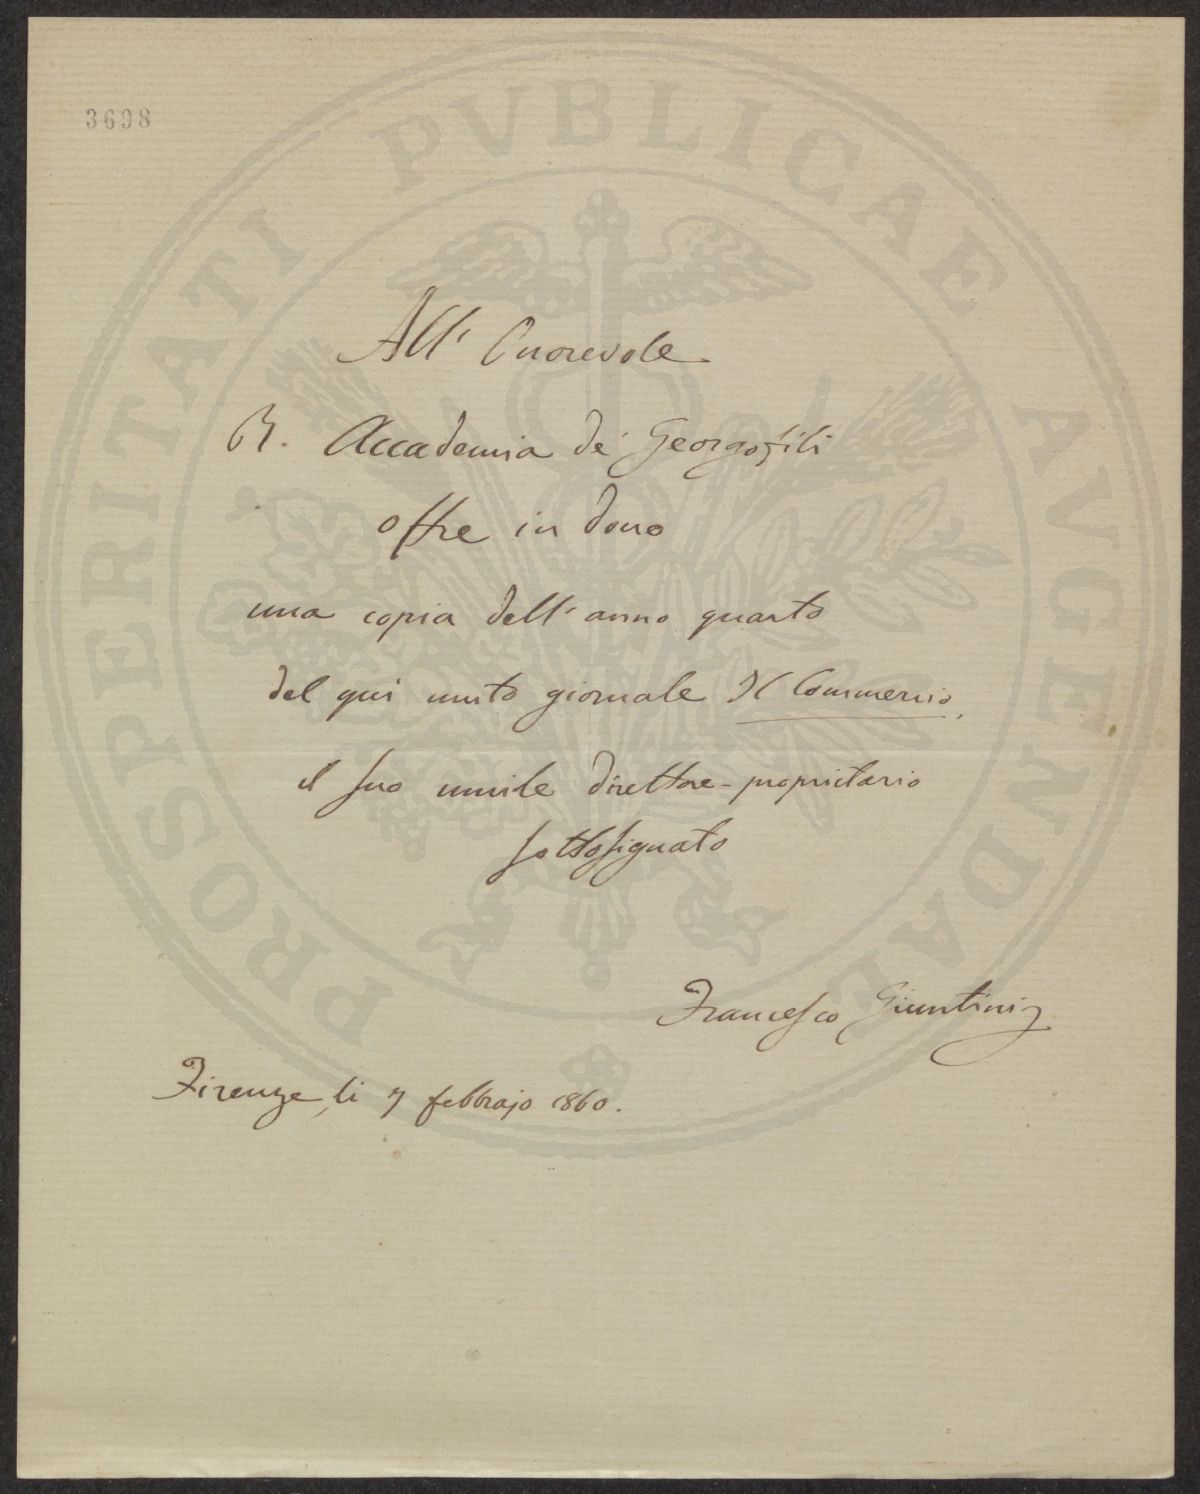 3698
PROSPERITATI PVBLICAE AVGENDAE
All' Onorevole
R. Accademia de' Georgofili
offre in dono
una copia dell'anno quarto
del qui unito giornale Il Commercio,
il suo umile direttore-proprietario
sottosignato
Francesco Giuntini
Firenze, li 7 febbrajo 1860.